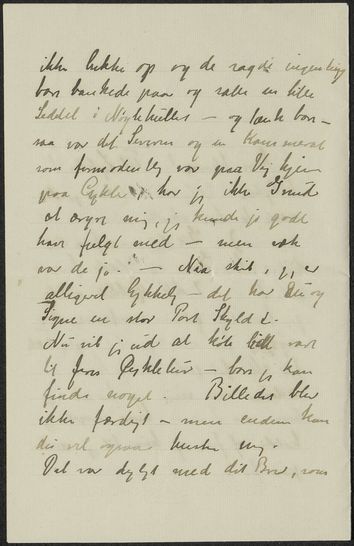 ikke lukke op og de sagde ingenting
bare bankede paa og satte en lille
Seddel i Nøglehullet – og tænk bare –
saa var det Severin og en Kammerat
som formodentlig var paa Vej hjem
paa Cykle, har jeg ikke Grund
at ærgre mig, jeg kunde jo godt
have fulgt med – men væk
var de jo. – Naa skit, jeg er
alligevel lykkelig – det har Du og
Signe en stor Part Skyld i.
Nu vil jeg ud at købe lidt
til Jeres – bare jeg kan
finde noget. Billedet blev
ikke færdigt – men endnu kan
du vel ogsaa huske mig.
Det var dejligt med dit Brev, som